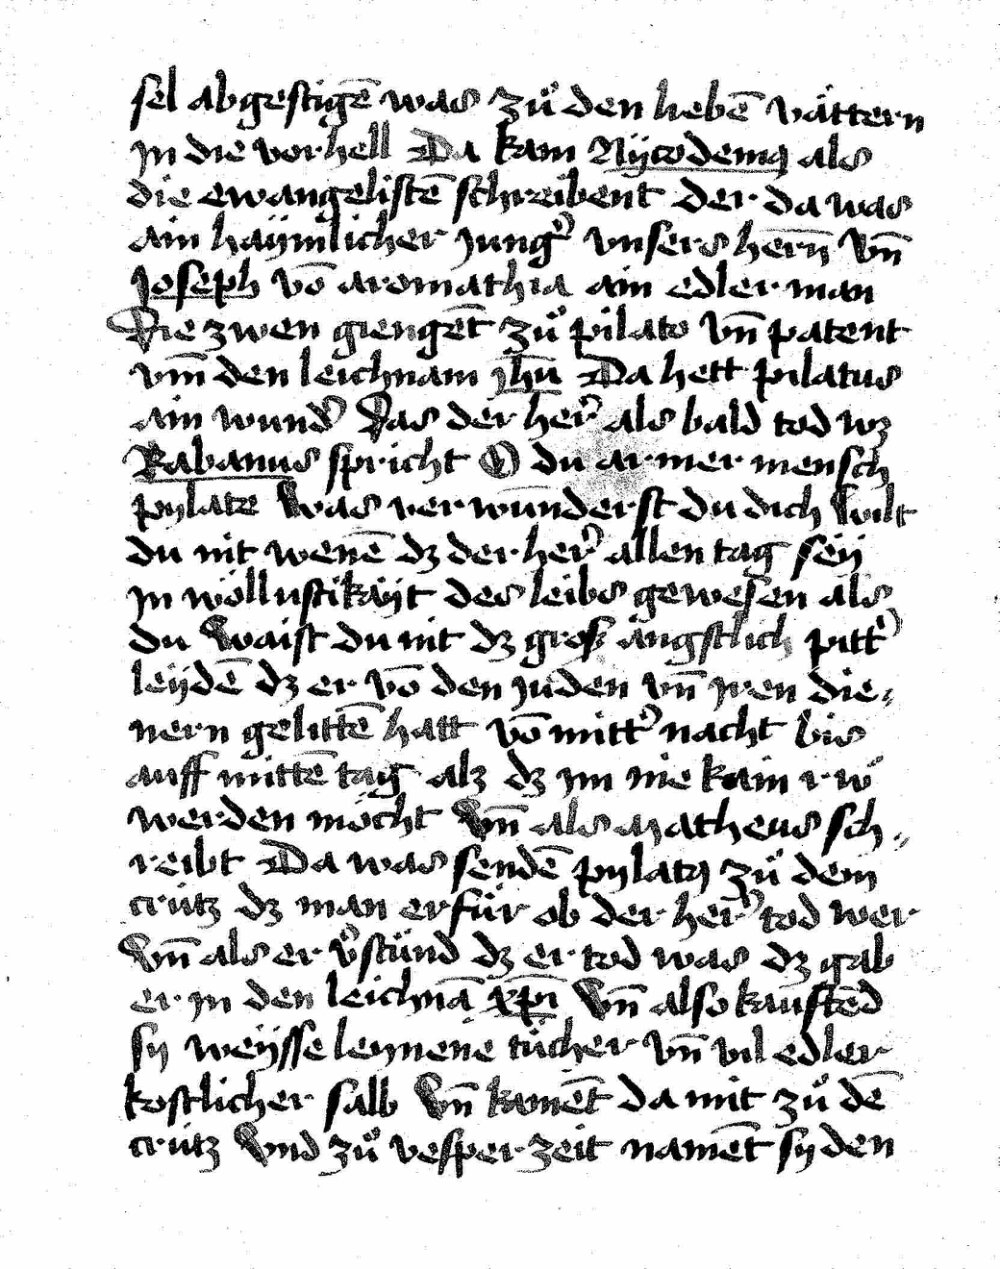 sel abgestigē was zuͦ den liebē vättern
jn die vorhell Da kam Nÿcodemꝫ als
die ewangelistē schreibent der da was
ain haÿmlicher jungͬ vnsers herñ Vn̄
Joseph vō aromathia ain edler man
Die zwen giengēt zuͦ pilato vn̄ patent
vm̄ den leichnam jhū Da hett pilatus
ain wundͬ Das der herͬ als bald tod wz
Rabanus spricht O du armer mensch
pylate Was verwunderst du dich Wilt
du nit wenē dz der herͬ allen tag seÿ
jn wöllustikäÿt des leibs gewesen als
du Waist du nit dz gros ängstlich pittͬ
leÿdē dz er vō den juden vn̄ jren die⸗
nern gelittē hatt vō mittͬ nacht bis
auff mittē tag alz dz jm nie kain rwͦ
werden möcht Vn̄ als Matheus sch⸗
reibt Da was sendē pylatꝫ zuͦ dem
crütz dz man erfür ob der herͬ tod wer
Vn̄ als er vͬstünd dz er tod was dz gab
er jn den leichnā xp̄i Vn̄ also kauftēd
sy weÿsse leynene tücher vn̄ vil edler
kostlicher salb Vn̄ kamēt da mit zuͦ dē
crütz Vnd zuͦ vesper zeit namēt sy den